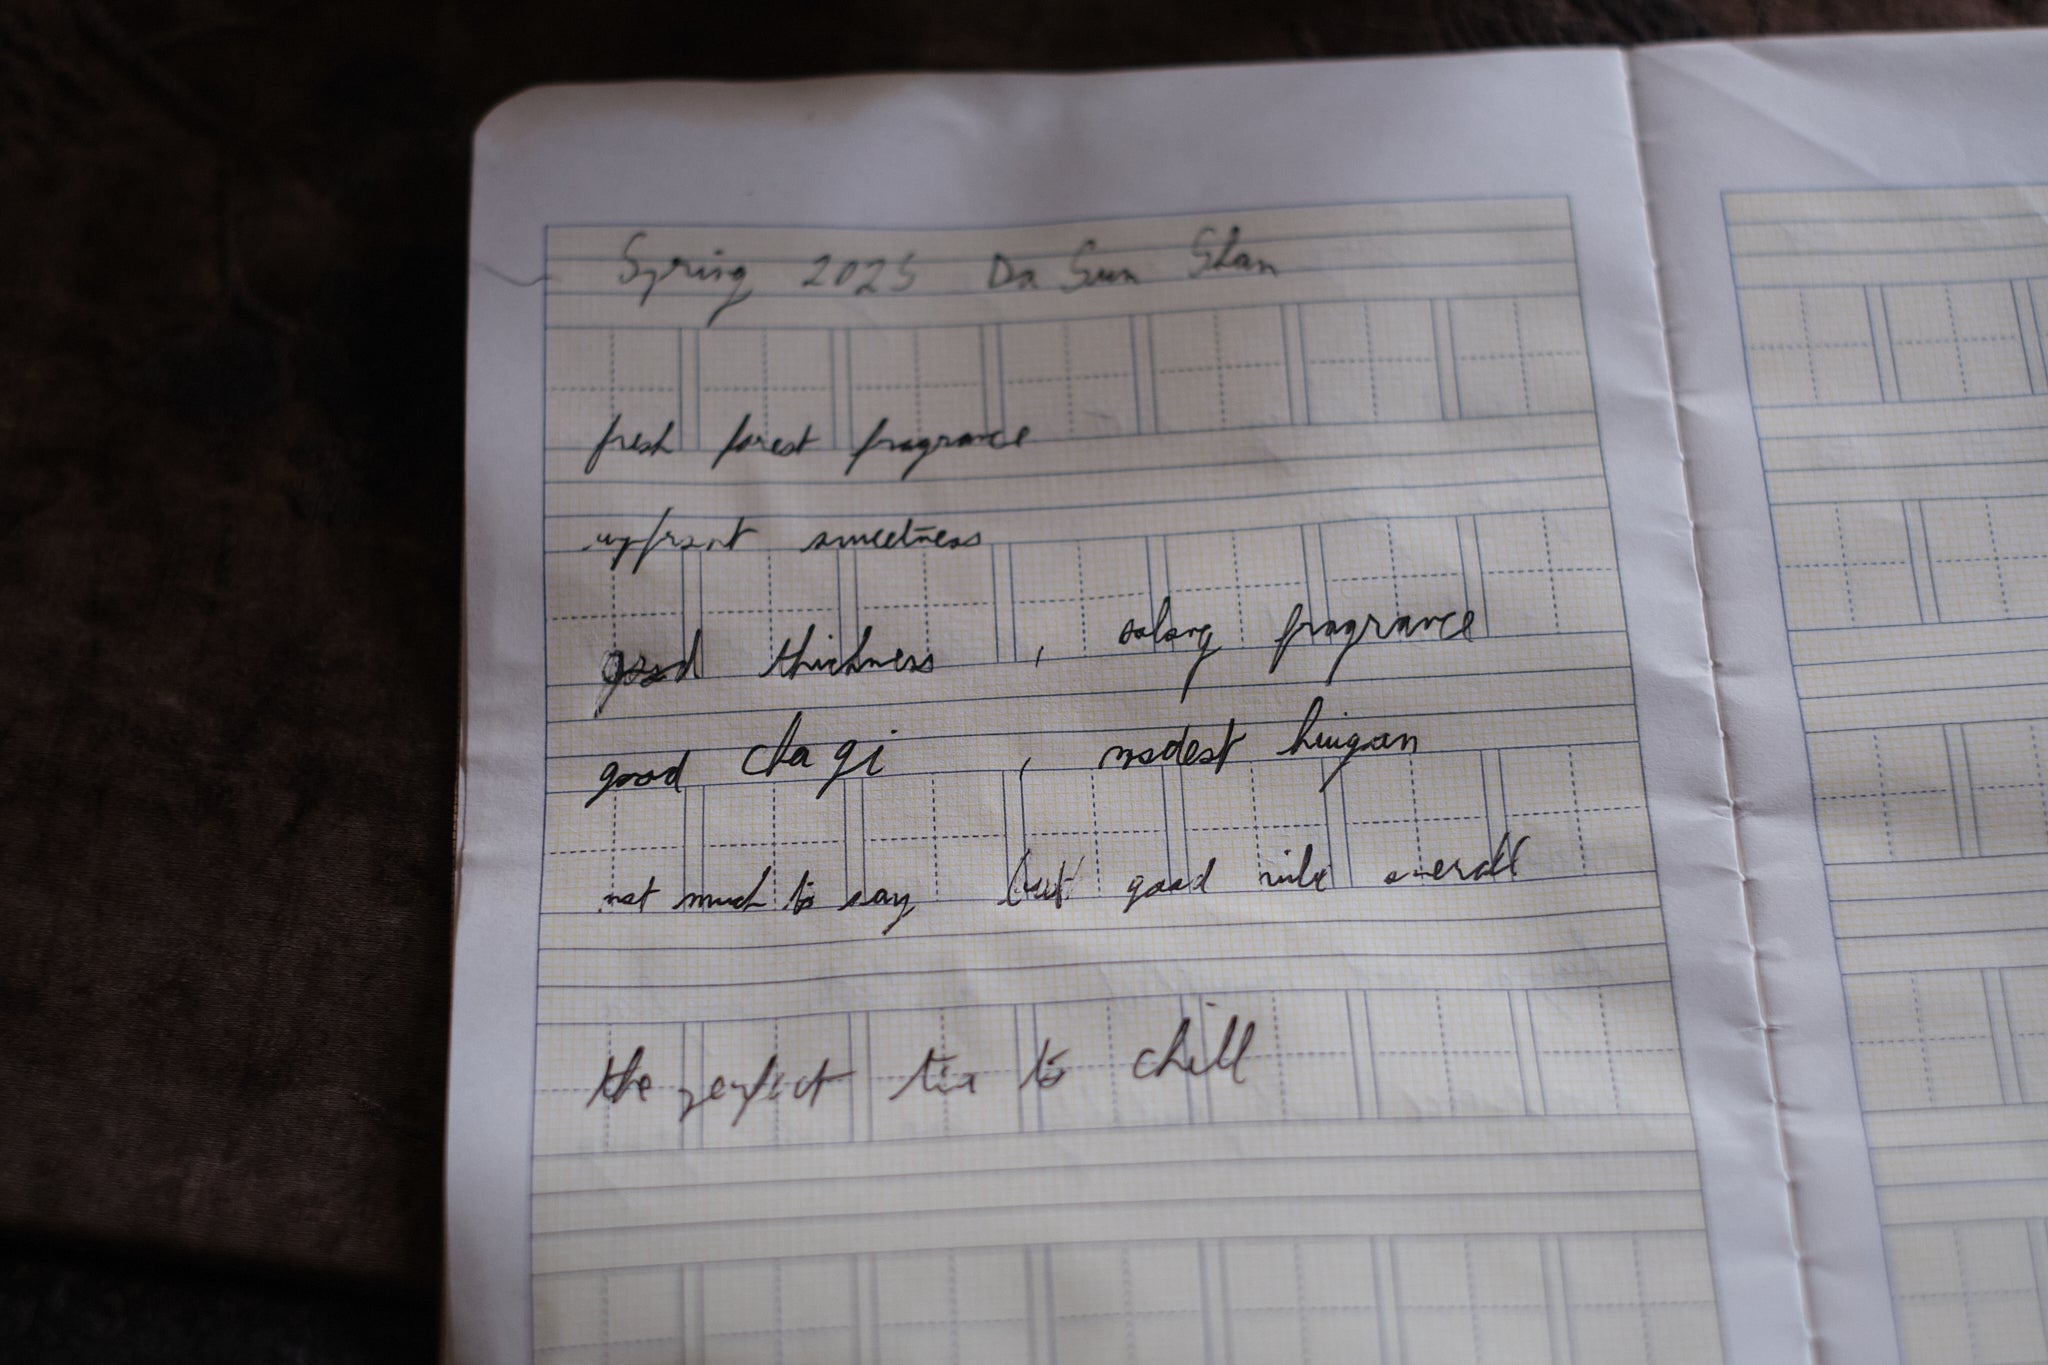 Spring 2025 Da Sun Shan
fresh forest fragrance
upfront sweetness
good thickness, solong fragrance
good chaqi, modest huigan
not much to say but good overall
the perfect tea to chill